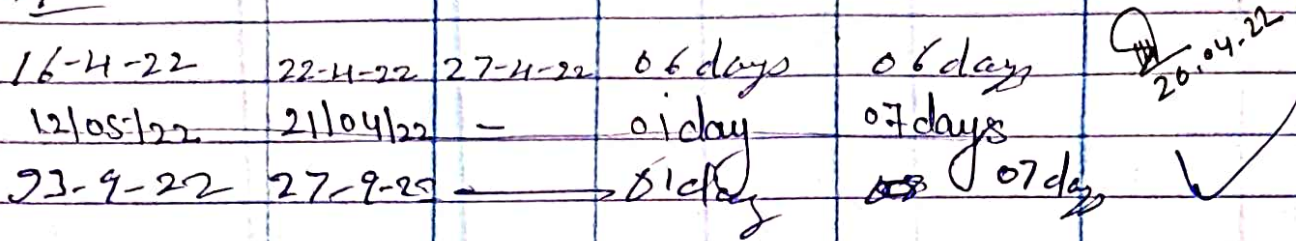 16-4-22 22-4-22 27-4-22 06 days 06 days 20.04.22
12/05/22 21/04/22 - 01 day 07 days
23-9-22 27-9-22 01 day 07 days